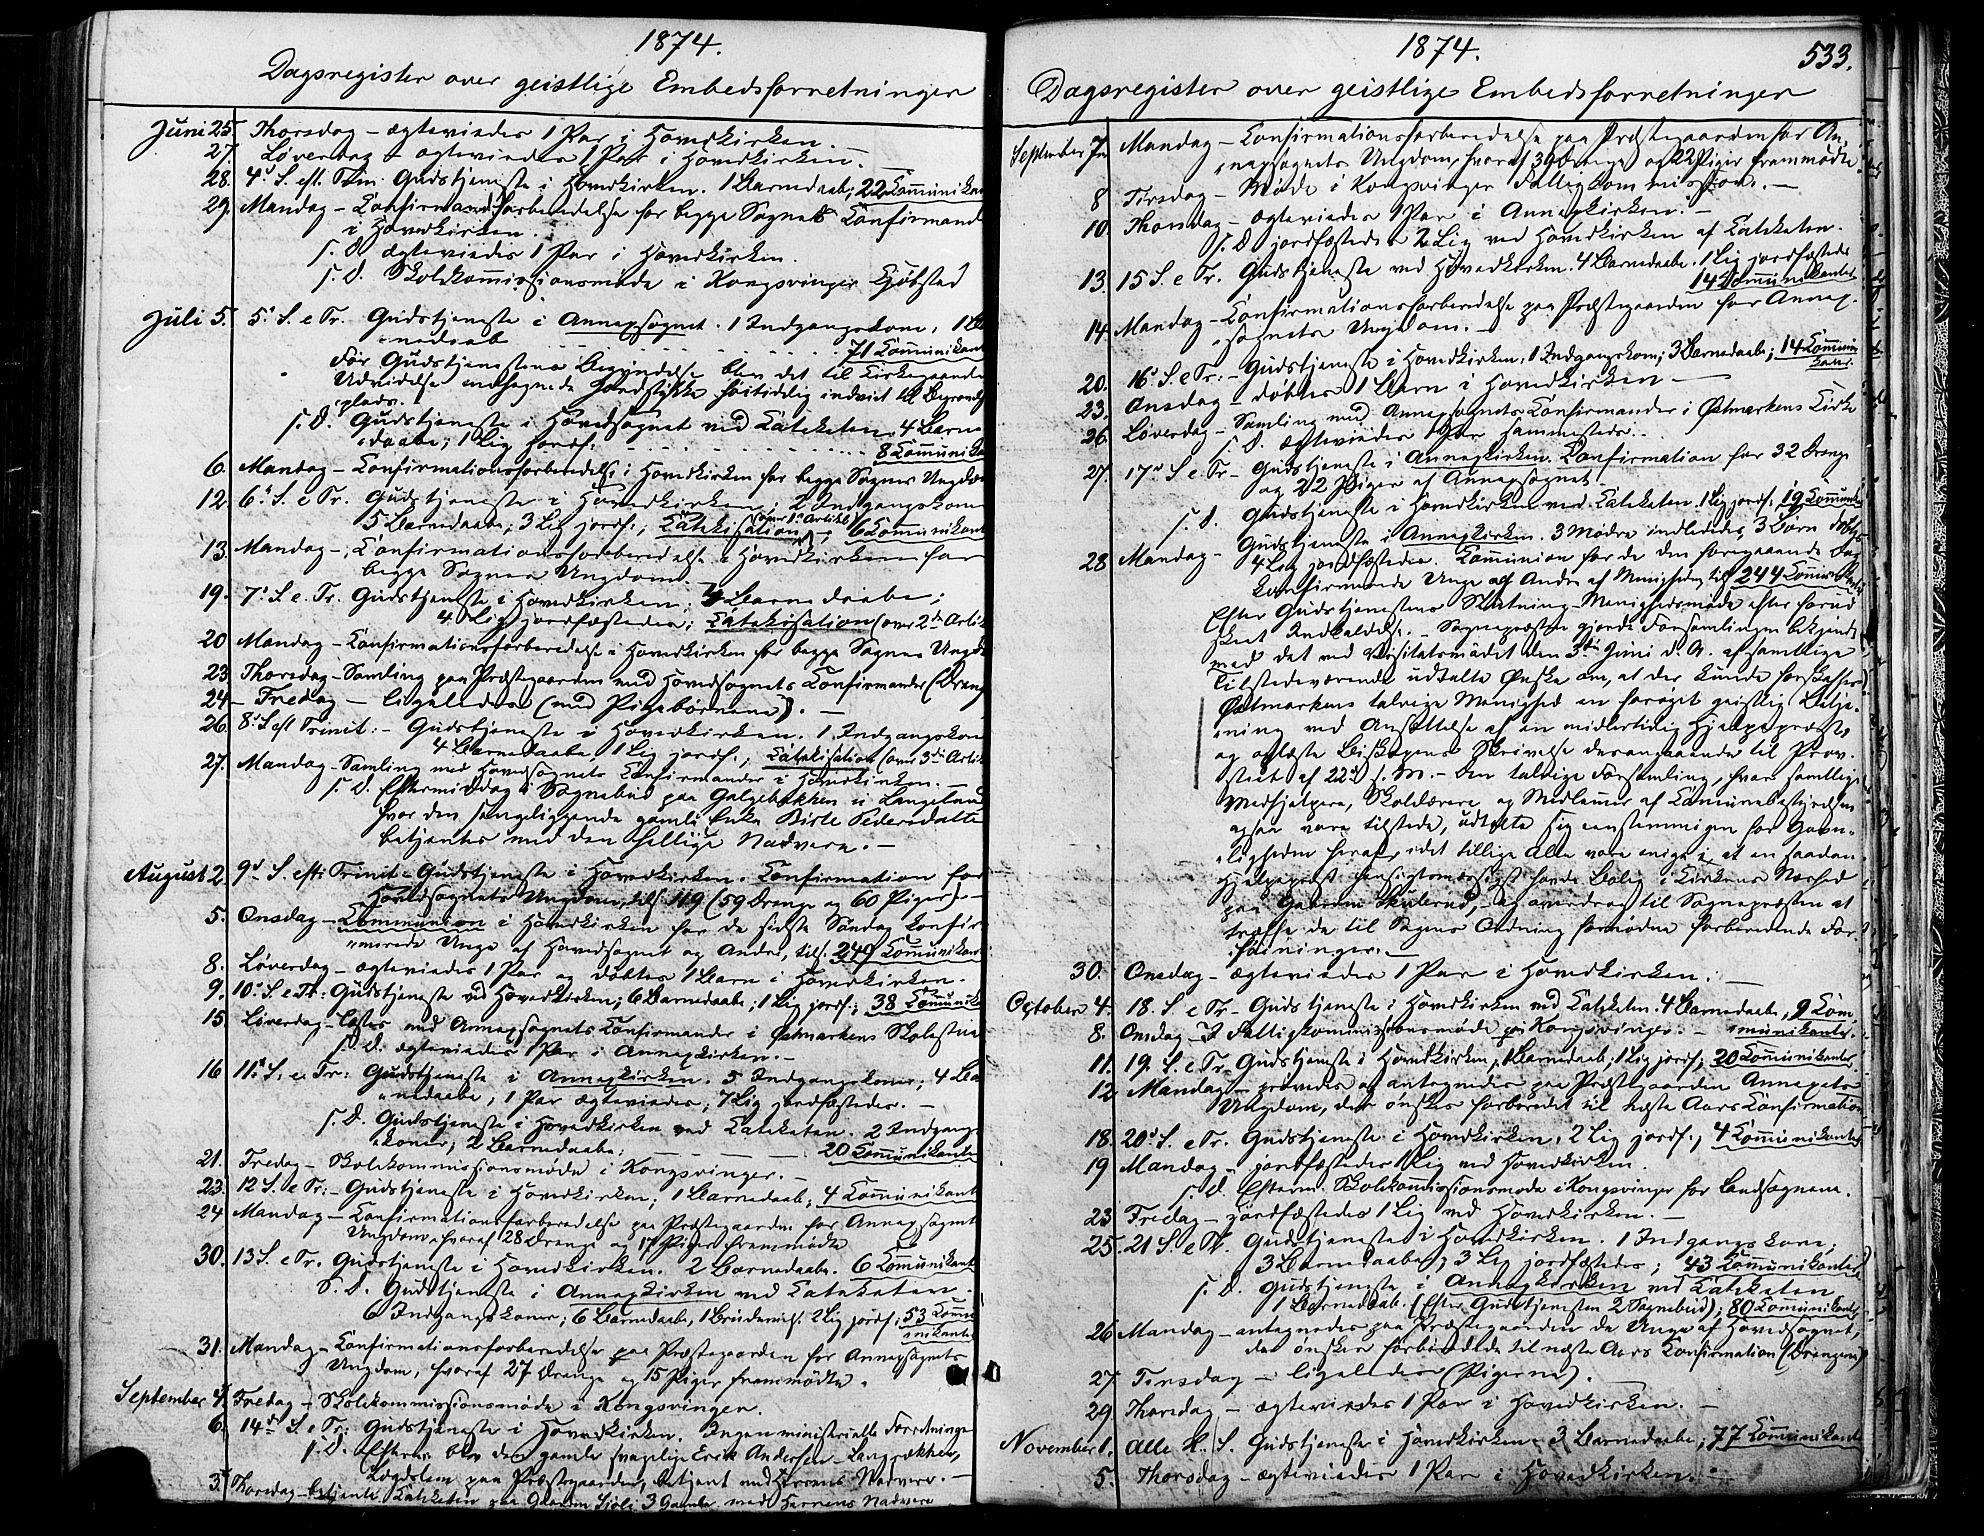 1874.
Dagsregister over geistlige Embedsforretninger
Juni 25. Thorsdag – ægteviedes 1 Par i Hovedkirken.
27. Løverdag – ægteviedes 1 Par i Hovedkirken. –
28. 4d S. eft. Trin. Gudstjeneste i Hovedkirken. 1 Barnedaab; 22 Communikan
29. Mandag – Confirmationsforberedelse for begge Sognes Confirmand
i Hovedkirken.
s. D. ægteviedes 1 Par i Hovedkirken.
s. D. Skolekommissionsmøde i Kongsvinger Kjøbstad
Juli 5. 5d S. e Tr. Gudstjeneste i Annexsognet. 1 Indgangskone, 1 Ba
nedaab 71 Communikant
Før Gudstjenestens Begyndelse blev det til Kirkegaarden
Udvidelse indhegnede Jordstykke høitidelig indviet til Begravelses
plads.
s. D. Gudstjeneste i Hovedsognet ved Catecheten. 4 Barne
daabe; 1 Lig jordf. 8 Communika
6. Mandag – Confirmationsforberedelse i Hovedkirken for begge Sognes Ungdom
12. 6d S. e Tr. Gudstjeneste i Hovedkirken. 2 Indgangskone
5 Barnedaabe; 3 Lig jordf.; Catekisation (over 1ste Artikel) 6 Communikant
13. Mandag – Confirmationsforberedelse i Hovedkirken for
begge Sognes Ungdom.
19. 7d S. e. Tr. Gudstjeneste i Hovedkirken; 4 Barnedaabe;
4 Lig jordfæstedes; Catekisation (over 2den Artik
20 Mandag – Confirmationsforberedelse i Hovedkirken for begge Sognes Ungd
23 Thorsdag – Samling paa Præstegaarden med Hovedsognets Confirmander (Dreng
24 – Fredag – ligeledes (med Pigebørnene). –
26. 8d S. eft Trinit: – Gudstjeneste i Hovedkirken. 1 Indgangskon
4 Barnedaabe, 1 Lig jordf.; Catekisation (over 3die Artik
27. Mandag – Samling med Hovedsognets Confirmander i Hovedkirken. –
s. D. Eftermiddag i Sognebud paa Galgebakken u Langeland
hvor den sengeliggende gamle Enke Birte Pedersdatte
betjentes med den hellige Nadvere. –
August 2 9d S. eft. Trinit – Gudstjeneste i Hovedkirken. Confirmation for
Hovedsognets Ungdom, till 119 (59 Drenge og 60 Piger). –
5. Onsdag – Communion i Hovedkirken for de sidste Søndag confir
merede Unge af Hovedsognet og Andre, till. 240 Communikant
8. Løverdag – ægteviedes 1 Par og døbtes 1 Barn i Hovedkirken. –
9. 10d S. e Tr: Gudstjeneste ved Hovedkirken; 6 Barnedaabe; 1 Lig jordf.; 38 Communik
15. Løverdag – læstes med Annexsognets Confirmander i Østmarkens Skolestue
s. D. ægteviedes 1 Par i Annexkirken. –
16 11te S. e. Tr: Gudstjeneste i Annexkirken. 5 Indgangskoner; 4 Ba
nedaabe, 1 Par ægteviedes; 7 Lig jordfæstedes. –
s. D. Gudstjeneste i Hovedkirken ved Catecheten. 2 Indgangs
koner; 2 Barnedaabe; 20 Communikante
21. Fredag – Skolekommissionsmøde i Kongsvinger. –
23. 12 S. e Tr: – Gudstjeneste i Hovedkirken; 1 Barnedaab; 4 Communikant
24 Mandag – Confirmationsforberedelse paa Præstegaarden for Annexsognet
Ungdom, hvoraf 28 Drenge og 17 Piger fremmødte
30. 13 S. e Tr. Gudstjeneste i Hovedkirken. 2 Barnedaabe. 6 Communikant
S. D. Gudstjeneste i Annexkirken ved Catecheten.
6 Indgangskoner; 6 Barnedaabe, 1 Brudeviels. 2 Lig jordf.; 53 Commu
nikante
31. Mandag – Confirmationsforberedelse paa Præstegaarden for Annexsognets
Ungdom, hvoraf 27 Drenge og 15 Piger fremmødte.
September 4. Fredag – Skolekommissionsmøde i Kongsvinger.
6. 14de S. e Tr: Gudstjeneste i Hovedkirken. Ingen ministerielle Forretninge
s. D. Efterm. blev den gamle svagelige Erik Andersen – Langrækken,
Lægdslem paa Præstegaarden, betjent med Herrens Nadvere. –
3. Thorsdag – betjente Catecheten paa Gaarden 3 Gamle med Herrens Nadvere
1874. 533.
Dagsregister over geistlige Embedsforretninger
September 7de Mandag – Confirmationsforberedelse paa Præstegaarden for An,
nexsognets Ungdom, hvoraf 30 Drenge og 22 Piger fremmødte
8 Tirsdag – Møde i Kongsvinger Fattigkommission. –
10. Thorsdag – ægteviedes 1 Par i Annexkirken. –
s. D. jordfæstedes 2 Lig ved Hovedkirken af Catecheten.
13. 15 S. e Tr. Gudstjeneste ved Hovedkirken. 4 Barnedaabe. 1 Lig jordfæstedes
14 Communikanter
14. Mandag – Confirmationsforberedelse paa Præstegaarden for Annex-
sognets Ungdom. –
20. 16d S. e Tr. – Gudstjeneste i Hovedkirken, 1 Indgangskone; 3 Barnedaabe; 14 Communi
kanter
23. Onsdag – døbtes 1 Barn i Hovedkirken –
26. Løverdag – Samling med Annexsognets Confirmander i Østmarkens Kirke
s. D. ægteviedes 1 Par sammesteds. –
27. 17d S. e. Tr – Gudstjeneste i Annexkirken. Confirmation for 32 Drenge
og 22 Piger af Annexsognet –
s. D. Gudstjeneste i Hovedkirken ved Catecheten. 1 Lig jordf. 19 Communi
28 Mandag – Gudstjeneste i Annexkirken. 3 Mødre indlededes, 3 Børn døbtes
4 Lig jordfæstedes. Communion for de den foregaaende Dag
konfirmerede Unge og Andre af Menigheden, till 244 Communikanter
Efter Gudstjenestens Slutning – Menighedsmøde efter forud
skeet Indkaldelse. – Sognepræsten gjorde Forsamlingen bekjendt
med det ved Visitatsmødet den 3die Juni d. A. af samtlige
Tilstedeværende udtalte Ønske om, at der kunde forskaffes
Østmarkens talrige Menighed en forøget geistlig Betje-
ning ved Ansættelse af en midlertidig Hjælpepræst,
og oplæste Biskopens Skrivelse derangaaende til Prov-
stiet af 22d s. M. – Den talrige Forsamling, hvor samtlige
Medhjælpere, Skolelærere og Medlemmer af Communebestyrelsen
ogsaa vare tilstede, udtalte sig eenstemmigen for Gavn-
ligheden heraf, idet tillige Alle vare enige i, at en saadan
Hjælpepræst hensigtsmæssigst havde Bolig i Kirkens Nærhed
paa Gaarden Skulerud, – og overdrog til Sognepræsten at
træffe de til Sagens Ordning fornødne forberedende For-
føininger. –
30. Onsdag – ægteviedes 1 Par i Hovedkirken. –
October 4. 18. S. e Tr – Gudstjeneste i Hovedkirken ved Catecheten. 4 Barnedaabe, 9 Com
munikanter.
8. Onsdag – I Fattigkommissionsmøde paa Kongsvinger. –
11. 19. S. e Tr. Gudstjeneste i Hovedkirken, 1 Barnedaab; 1 Lig jordf; 20 Communikanter
12 Mandag – prøvedes og antegnedes paa Præstegaarden Annexets
Ungdom, der ønskes forberedet til næste Aars Confirmation
18. 20d S. e Tr. Gudstjeneste i Hovedkirken. 2 Lig jordf.; 4 Communikanter
19 Mandag – jordfæstedes 1 Lig ved Hovedkirken.
s. D. Efterm. Skolekommissionsmøde i Kongsvinger for Landsognene.
23 Fredag – jordfæstedes 1 Lig ved Hovedkirken. –
25. 21 S. e Tr. Gudstjeneste i Hovedkirken. 1 Indgangskone;
3 Barnedaabe; 3 Lig jordfæstedes; 43 Communikanter
s. D. Gudstjeneste i Annexkirken ved Catecheten
1 Barnedaab. (Efter Gudstjenesten 2 Sognebud); 80 Communikant
26 Mandag – antegnedes paa Præstegaarden de Unge af Hovedsognet,
der ønskes forberedede til næste Aars Confirmation (Drengene)
27 Tirsdag – ligeledes (Pigerne). –
29 Thorsdag – ægteviedes 1 Par i Hovedkirken. –
November 1. Alle H. S. Gudstjeneste i Hovedkirken – 3 Barnedaabe; 77 Communikante
5. Thorsdag – ægteviedes 1 Par i Hovedkirken. –